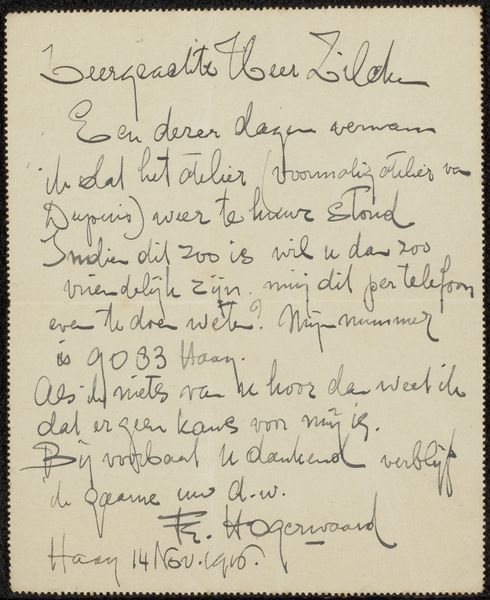 Zeergeachte Heer Zilcken
Een dezer dagen vernam
ik dat het atelier (voormalig atelier van
Dupuis) weer te huur stond
Indien dit zoo is wil u dan zoo
vriendelijk zijn mij dit per telefoon
even te doen weten? Mijn nummer
is 9083 Haag.
Als ik niets van u hoor dan weet ik
dat er geen kans voor mij is.
Bij voorbaat u dankend verblijf
ik gaarne uw d.w.
Fr. Hogerwaard
Haag 14 Nov. 1916.